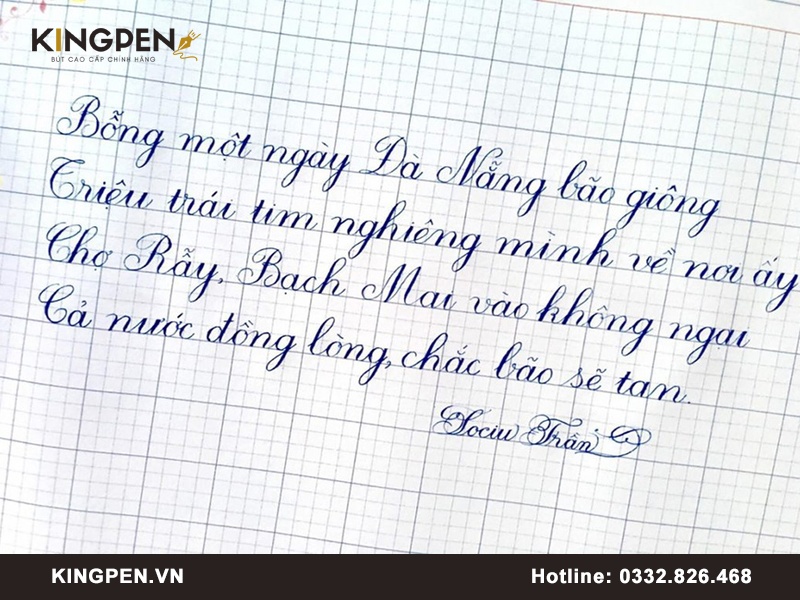 KINGPEN
BÚT CAO CẤP CHÍNH HÃNG
Bỗng một ngày Đà Nẵng bão giông
Triệu trái tim nghiêng mình về nơi ấy
Chợ Rẫy, Bạch Mai vào không ngại
Cả nước đồng lòng, chắc bão sẽ tan.
Trần
KINGPEN.VN
Hotline: 0332.826.468